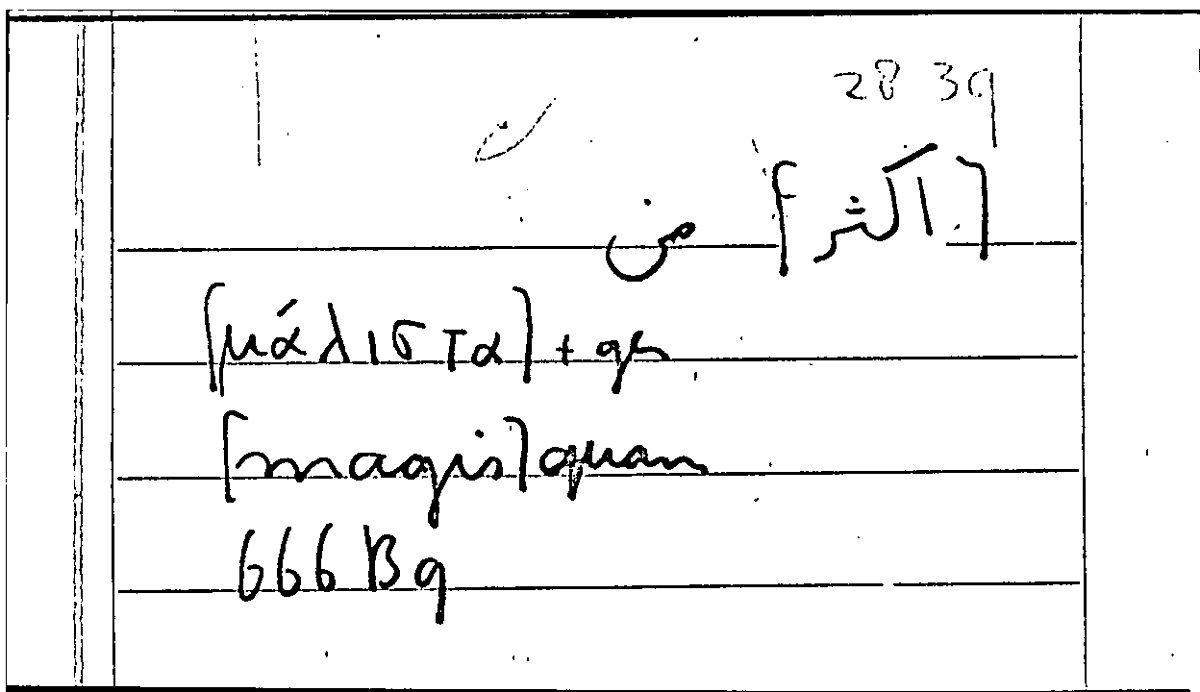 28 39
[اكثر] من
[μάλιστα] + gen
[magis] quam
666 B9